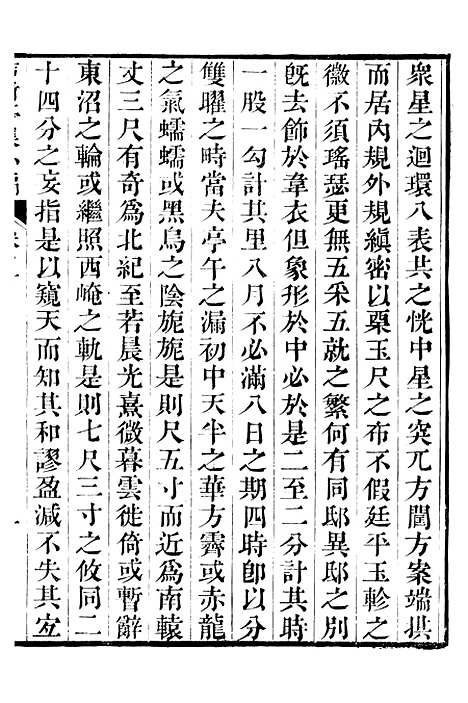 眾星之迴環八表共之恍中星之突兀方闈方案端拱
而居內規外規縝密以栗玉尺之布不假廷平玉軫之
徽不須瑤瑟更無五采五就之繁何有同邸異邸之別
旣去飾於韋衣但象形於中必於是二至二分計其時
一股一勾計其里八月不必滿八日之期四時卽以分
雙曜之時當夫亭午之漏初中天半之華方霽或赤龍
之氣蠕蠕或黑烏之陰旎旎是則尺五寸而近爲南轅
丈三尺有奇爲北紀至若晨光熹微暮雲徙倚或暫辭
東沼之輪或繼照西崦之軌是則七尺三寸之攸同二
十四分之妄指是以窺天而知其和謬盈減不失其宜